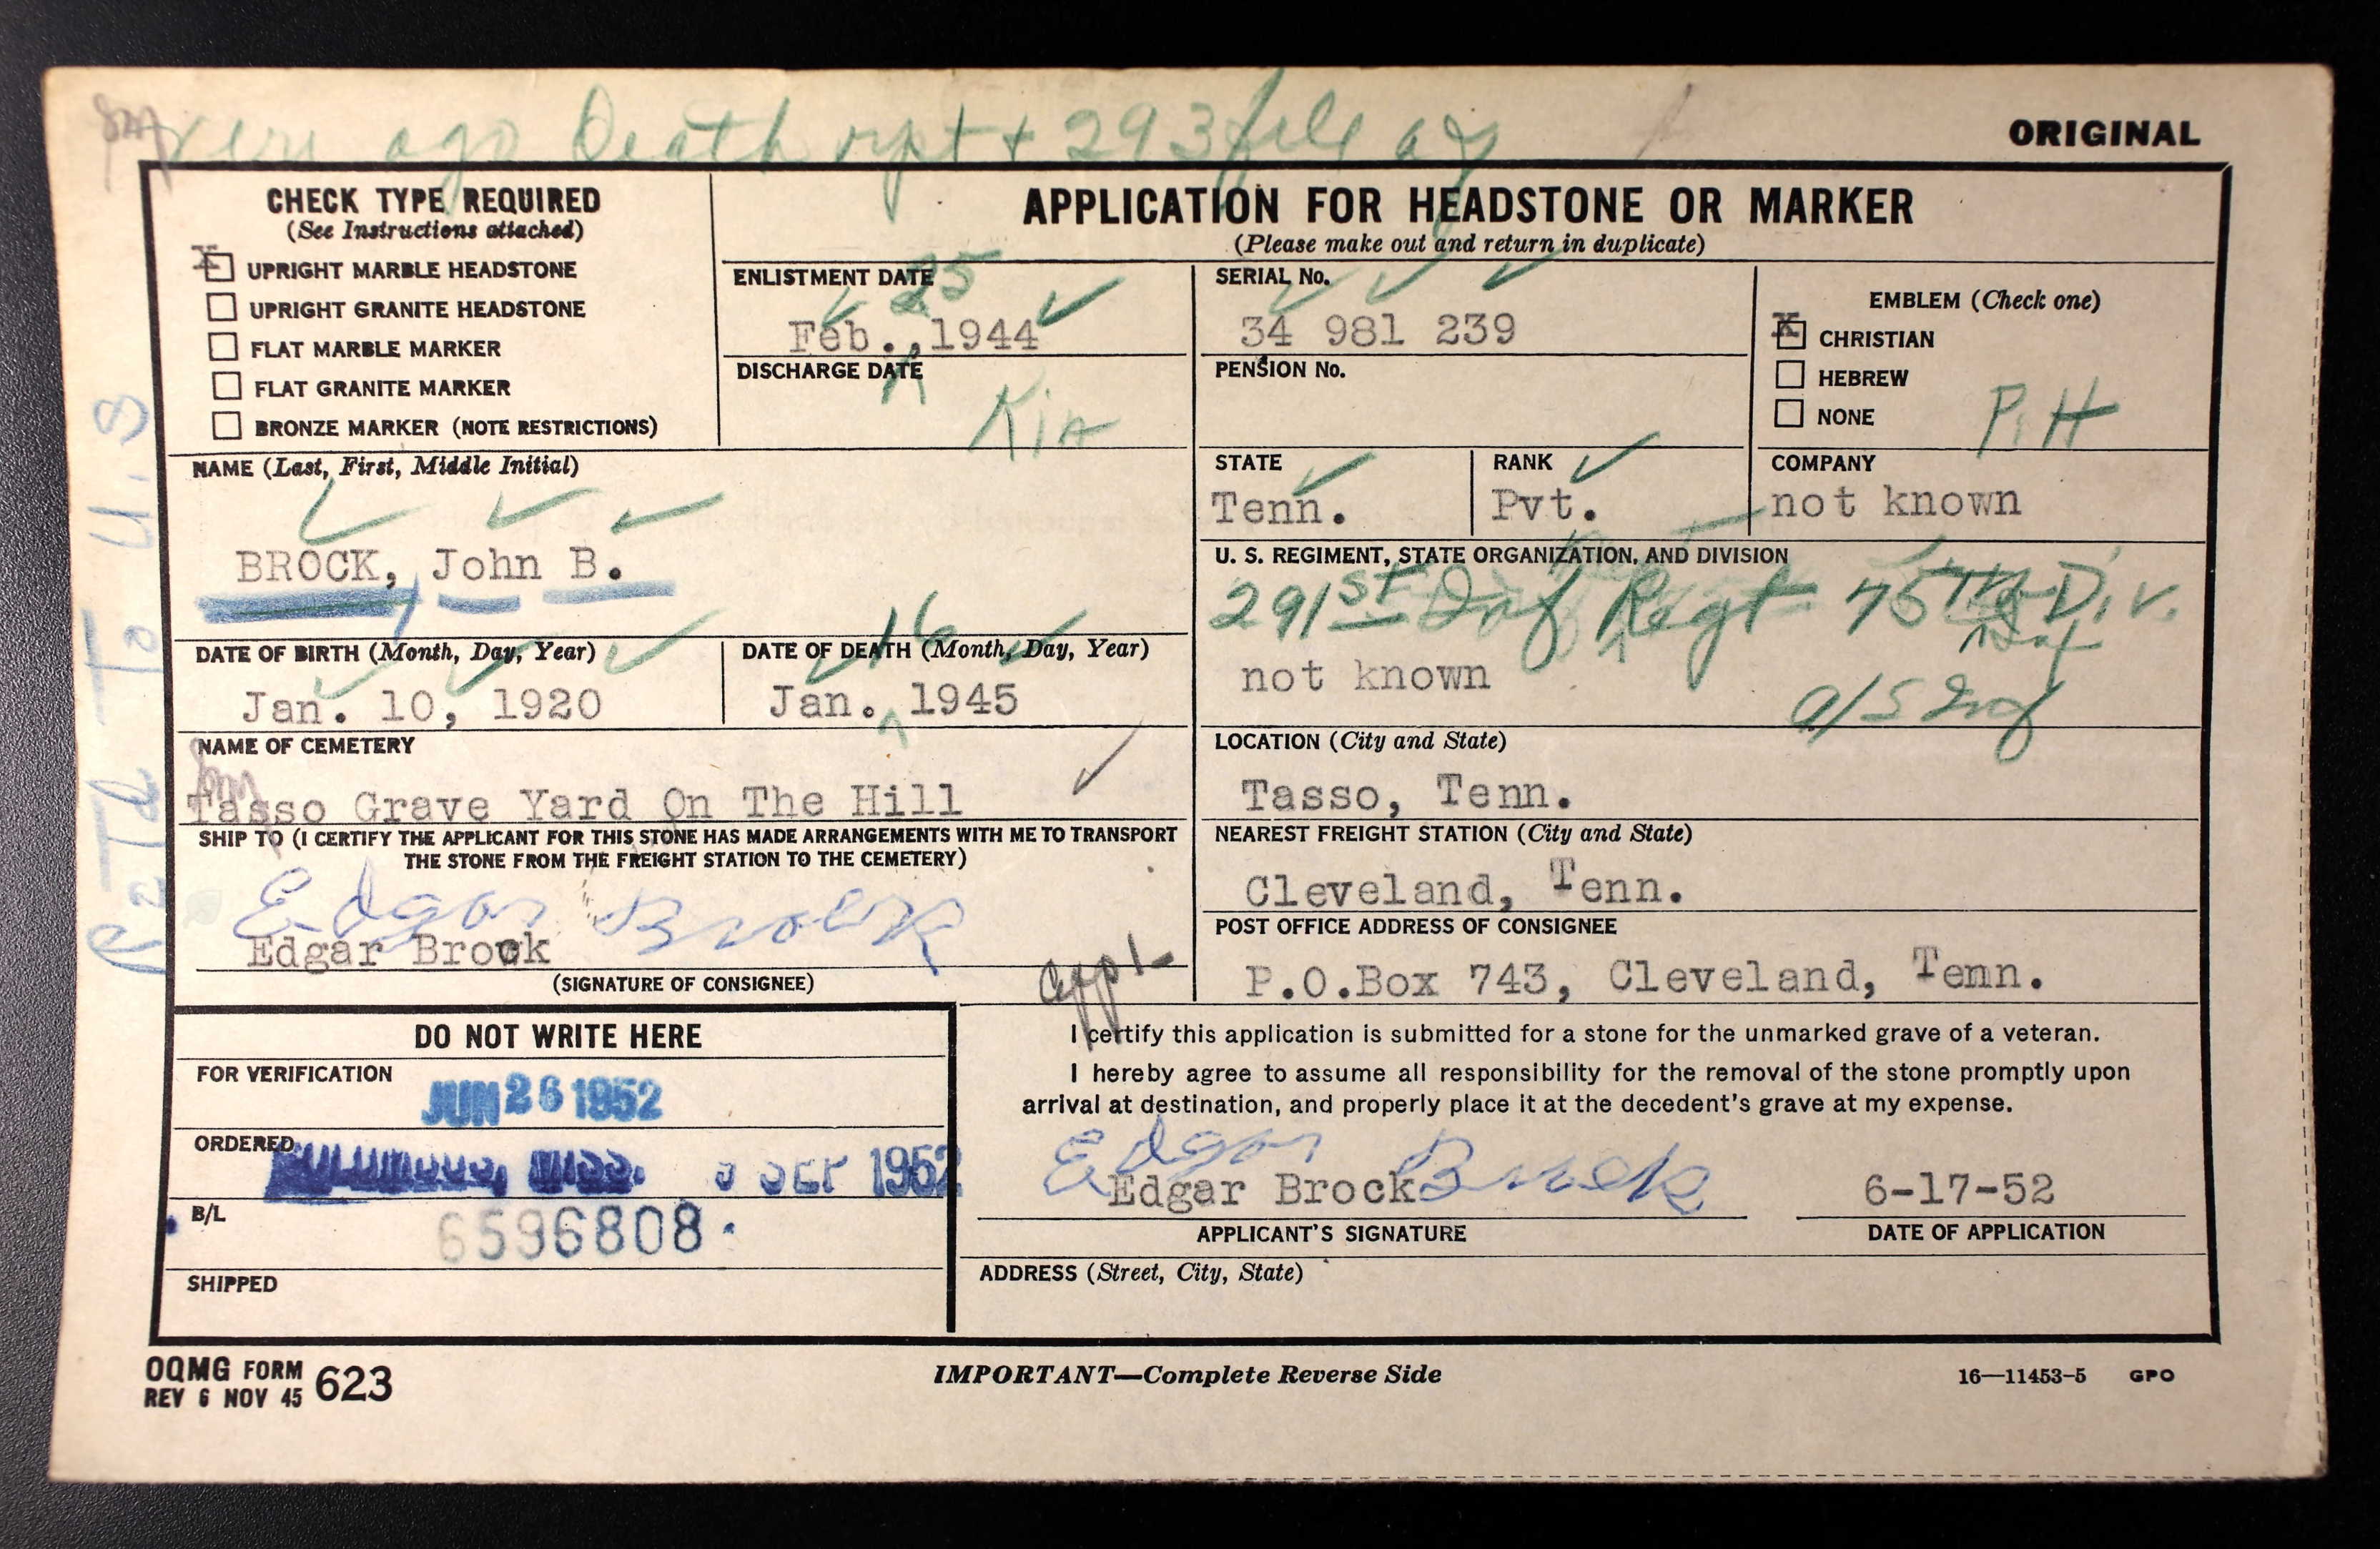 Veri ago Death rpt + 293 file ag
ORIGINAL
CHECK TYPE REQUIRED
(See Instructions attached)
X UPRIGHT MARBLE HEADSTONE
UPRIGHT GRANITE HEADSTONE
FLAT MARBLE MARKER
FLAT GRANITE MARKER
BRONZE MARKER (NOTE RESTRICTIONS)
APPLICATION FOR HEADSTONE OR MARKER
(Please make out and return in duplicate)
ENLISTMENT DATE
25
Feb. , 1944
DISCHARGE DATE
KiA
SERIAL No.
34 981 239
PENSION No.
EMBLEM (Check one)
X CHRISTIAN
HEBREW
NONE
P.H
NAME (Last, First, Middle Initial)
BROCK, John B.
STATE
Tenn.
RANK
Pvt.
COMPANY
not known
U. S. REGIMENT, STATE ORGANIZATION, AND DIVISION
291st Inf Regt 75th Div.
Inf
not known
a/s Inf
DATE OF BIRTH (Month, Day, Year)
Jan. 10, 1920
DATE OF DEATH (Month, Day, Year)
16
Jan. 1945
NAME OF CEMETERY
Tasso Grave Yard On The Hill
LOCATION (City and State)
Tasso, Tenn.
SHIP TO (I CERTIFY THE APPLICANT FOR THIS STONE HAS MADE ARRANGEMENTS WITH ME TO TRANSPORT
THE STONE FROM THE FREIGHT STATION TO THE CEMETERY)
Edgar Brock
Edgar Brock
(SIGNATURE OF CONSIGNEE)
NEAREST FREIGHT STATION (City and State)
Cleveland, Tenn.
POST OFFICE ADDRESS OF CONSIGNEE
P.O.Box 743, Cleveland, Tenn.
DO NOT WRITE HERE
FOR VERIFICATION
JUN 26 1952
ORDERED
SEP 1952
B/L
6596808
SHIPPED
I certify this application is submitted for a stone for the unmarked grave of a veteran.
I hereby agree to assume all responsibility for the removal of the stone promptly upon
arrival at destination, and properly place it at the decedent's grave at my expense.
Edgar Brock
Edgar Brock
APPLICANT'S SIGNATURE
6-17-52
DATE OF APPLICATION
ADDRESS (Street, City, State)
OQMG FORM 623
REV 6 NOV 45
IMPORTANT—Complete Reverse Side
16—11453-5 GPO
RETD TO U.S